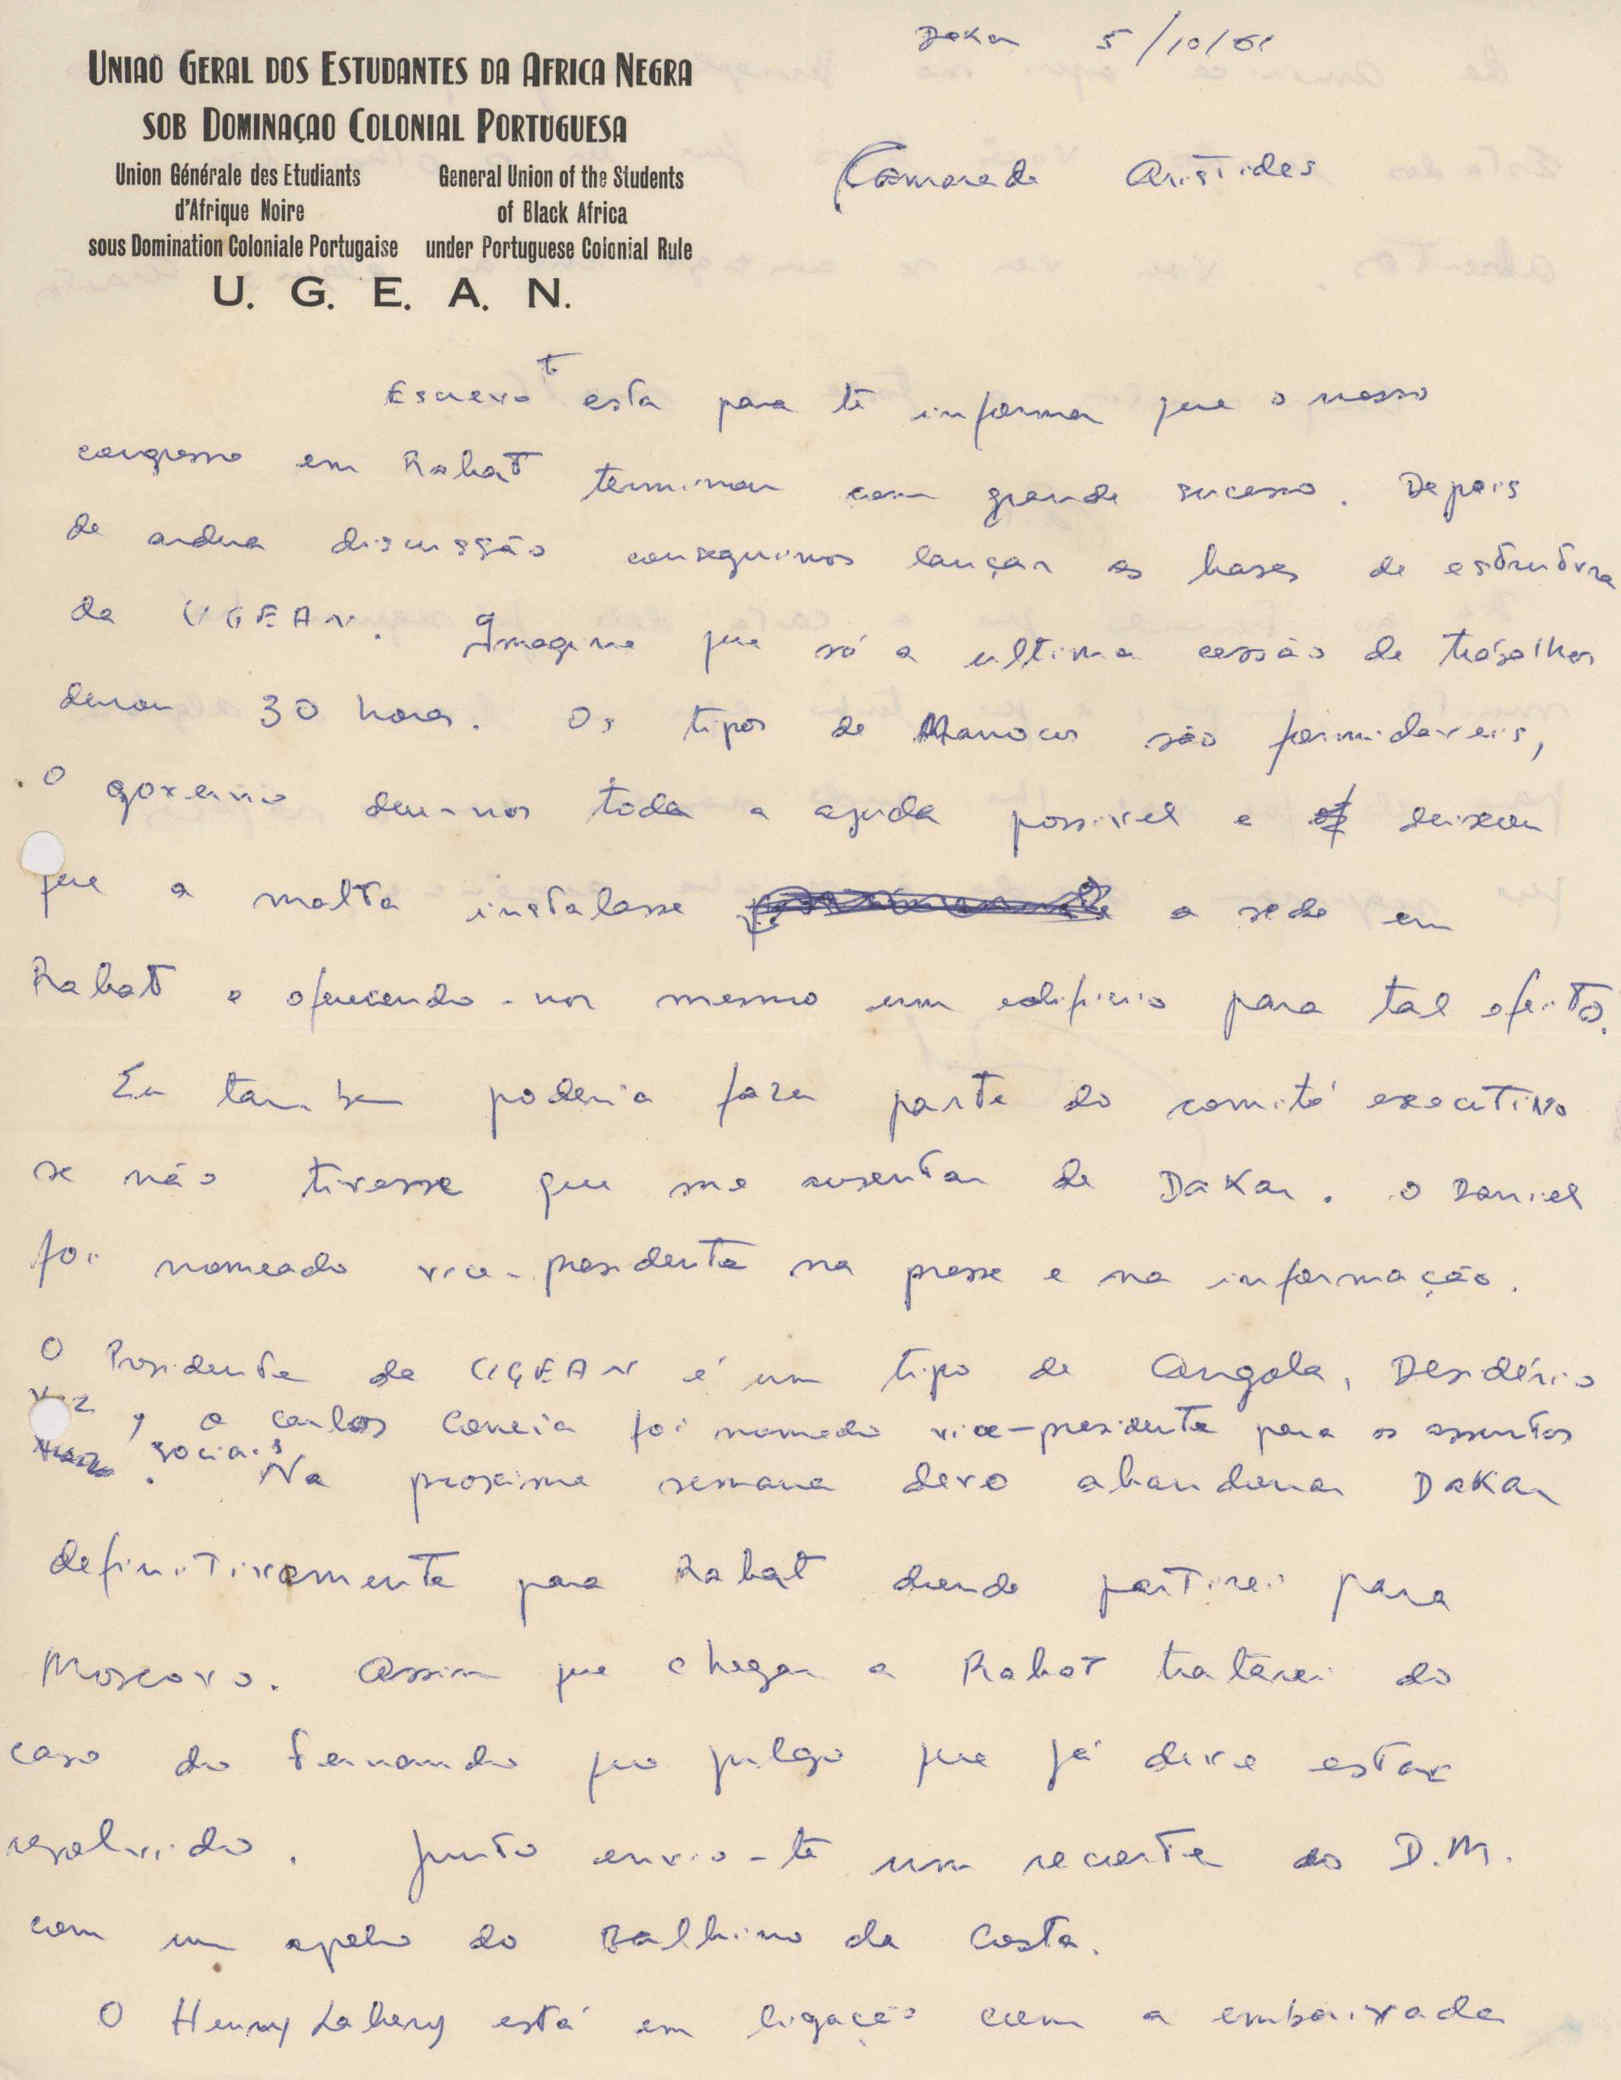 Dakar 5/10/61
UNIAO GERAL DOS ESTUDANTES DA AFRICA NEGRA
SOB DOMINAÇAO COLONIAL PORTUGUESA
Union Générale des Etudiants
d'Afrique Noire
sous Domination Coloniale Portugaise
General Union of the Students
of Black Africa
under Portuguese Colonial Rule
U. G. E. A. N.
Camarada Aristides
Escrevo te esta para te informar que o nosso
congresso em Rabat terminou com grande sucesso. Depois
de ardua discussão conseguimos lançar as bases de estrutura
da UGEAN. Imagina que só a ultima cessão de trabalhos
durou 30 horas. Os tipos de Marrocos são formidaveis,
O governo deu-nos toda a ajuda possivel e deixou
que a malta instalasse a sede em
Rabat e oferecendo-nos mesmo um edificio para tal efeito.
Eu tambem poderia fazer parte do comité executivo
se não tivesse que me ausentar de Dakar. O Daniel
foi nomeado vice-presidente na presse e na informação.
O Presidente da UGEAN é um tipo de Angola, Desidério
, o Carlos Correia foi nomeado vice-presidente para os assuntos
sociais. Na proxima semana devo abandonar Dakar
definitivamente para Rabat donde partirei para
Moscovo. Assim que chegar a Rabat tratarei do
caso do Fernando que julgo que já deve estar
resolvido. Junto envio-te um recorte do D.M.
com um apelo do Balbino da Costa.
O Henry Labery está em ligação com a embaixada